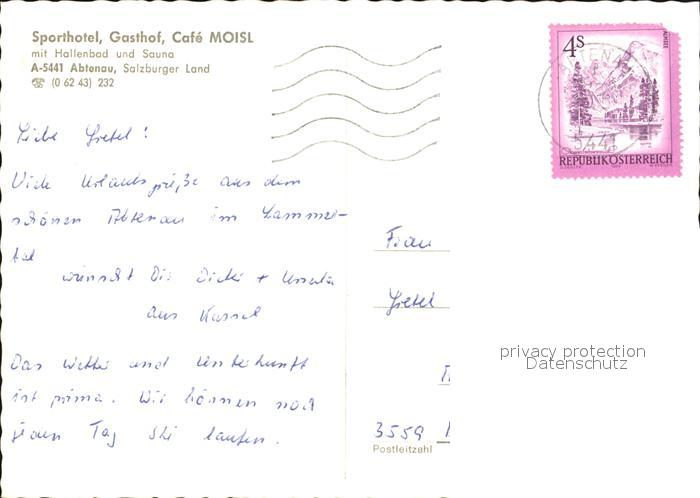 Sporthotel, Gasthof, Café MOISL
mit Hallenbad und Sauna
A-5441 Abtenau, Salzburger Land
☎ (0 62 43) 232
Liebe Gretel!
Viele Urlaubsgrüße aus dem
schönen Abtenau im Lammer-
tal
wünscht Dir Dieter + Ursula
aus Kassel
Das Wetter und Unterkunft
ist prima. Wir können noch
jeden Tag Ski laufen.
4S
ALMSEE
5441
REPUBLIK ÖSTERREICH
Frau
Gretel
privacy protection
Datenschutz
3559
Postleitzahl